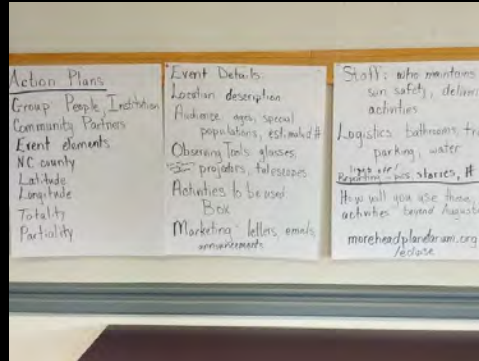 Action Plans
Group People, Institution
Community Partners
Event elements
NC county
Latitude
Longitude
Totality
Partiality
Event Details:
Location description
Audience ages, special
populations, estimated #
Observing Tools: glasses,
projectors, telescopes
Activities to be used
Box
Marketing: letters, emails,
announcements
Staff: who maintains
sun safety, deliver
activities
Logistics bathrooms,
parking, water
Reporting - pics, stories, #
How will you use these
activities beyond August
moreheadplanetarium.org
/eclipse